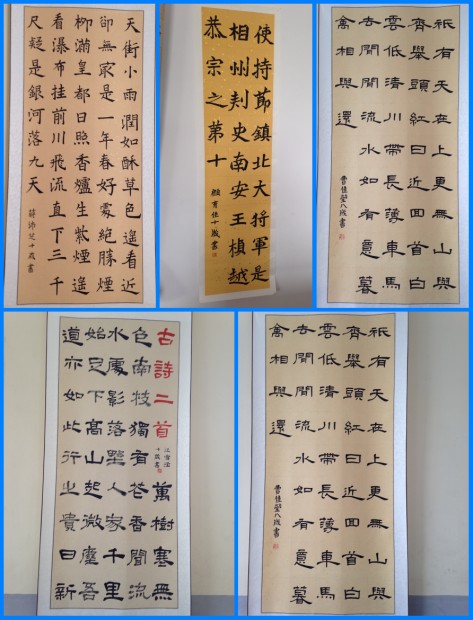 天街小雨潤如酥草色遙看近
卻無最是一年春好處絕勝煙
柳滿皇都日照香爐生紫煙遙
看瀑布挂前川飛流直下三千
尺疑是銀河落九天
十歲書
使持節鎮北大將軍是
相州刾史南安王楨越
恭宗之第十
十歲書
秖有天在上更無山與
齊舉頭紅日近回首白
雲低清川帶長薄車馬
去閑閑流水如有意暮
禽相與還
曹佳瑩八歲書
古詩二首
十歲書
萬樹寒無
色南枝獨有花香聞流
水處影落野人家千里
始足下高山起微塵吾
道亦如此行之貴日新
秖有天在上更無山與
齊舉頭紅日近回首白
雲低清川帶長薄車馬
去閑閑流水如有意暮
禽相與還
曹佳瑩八歲書